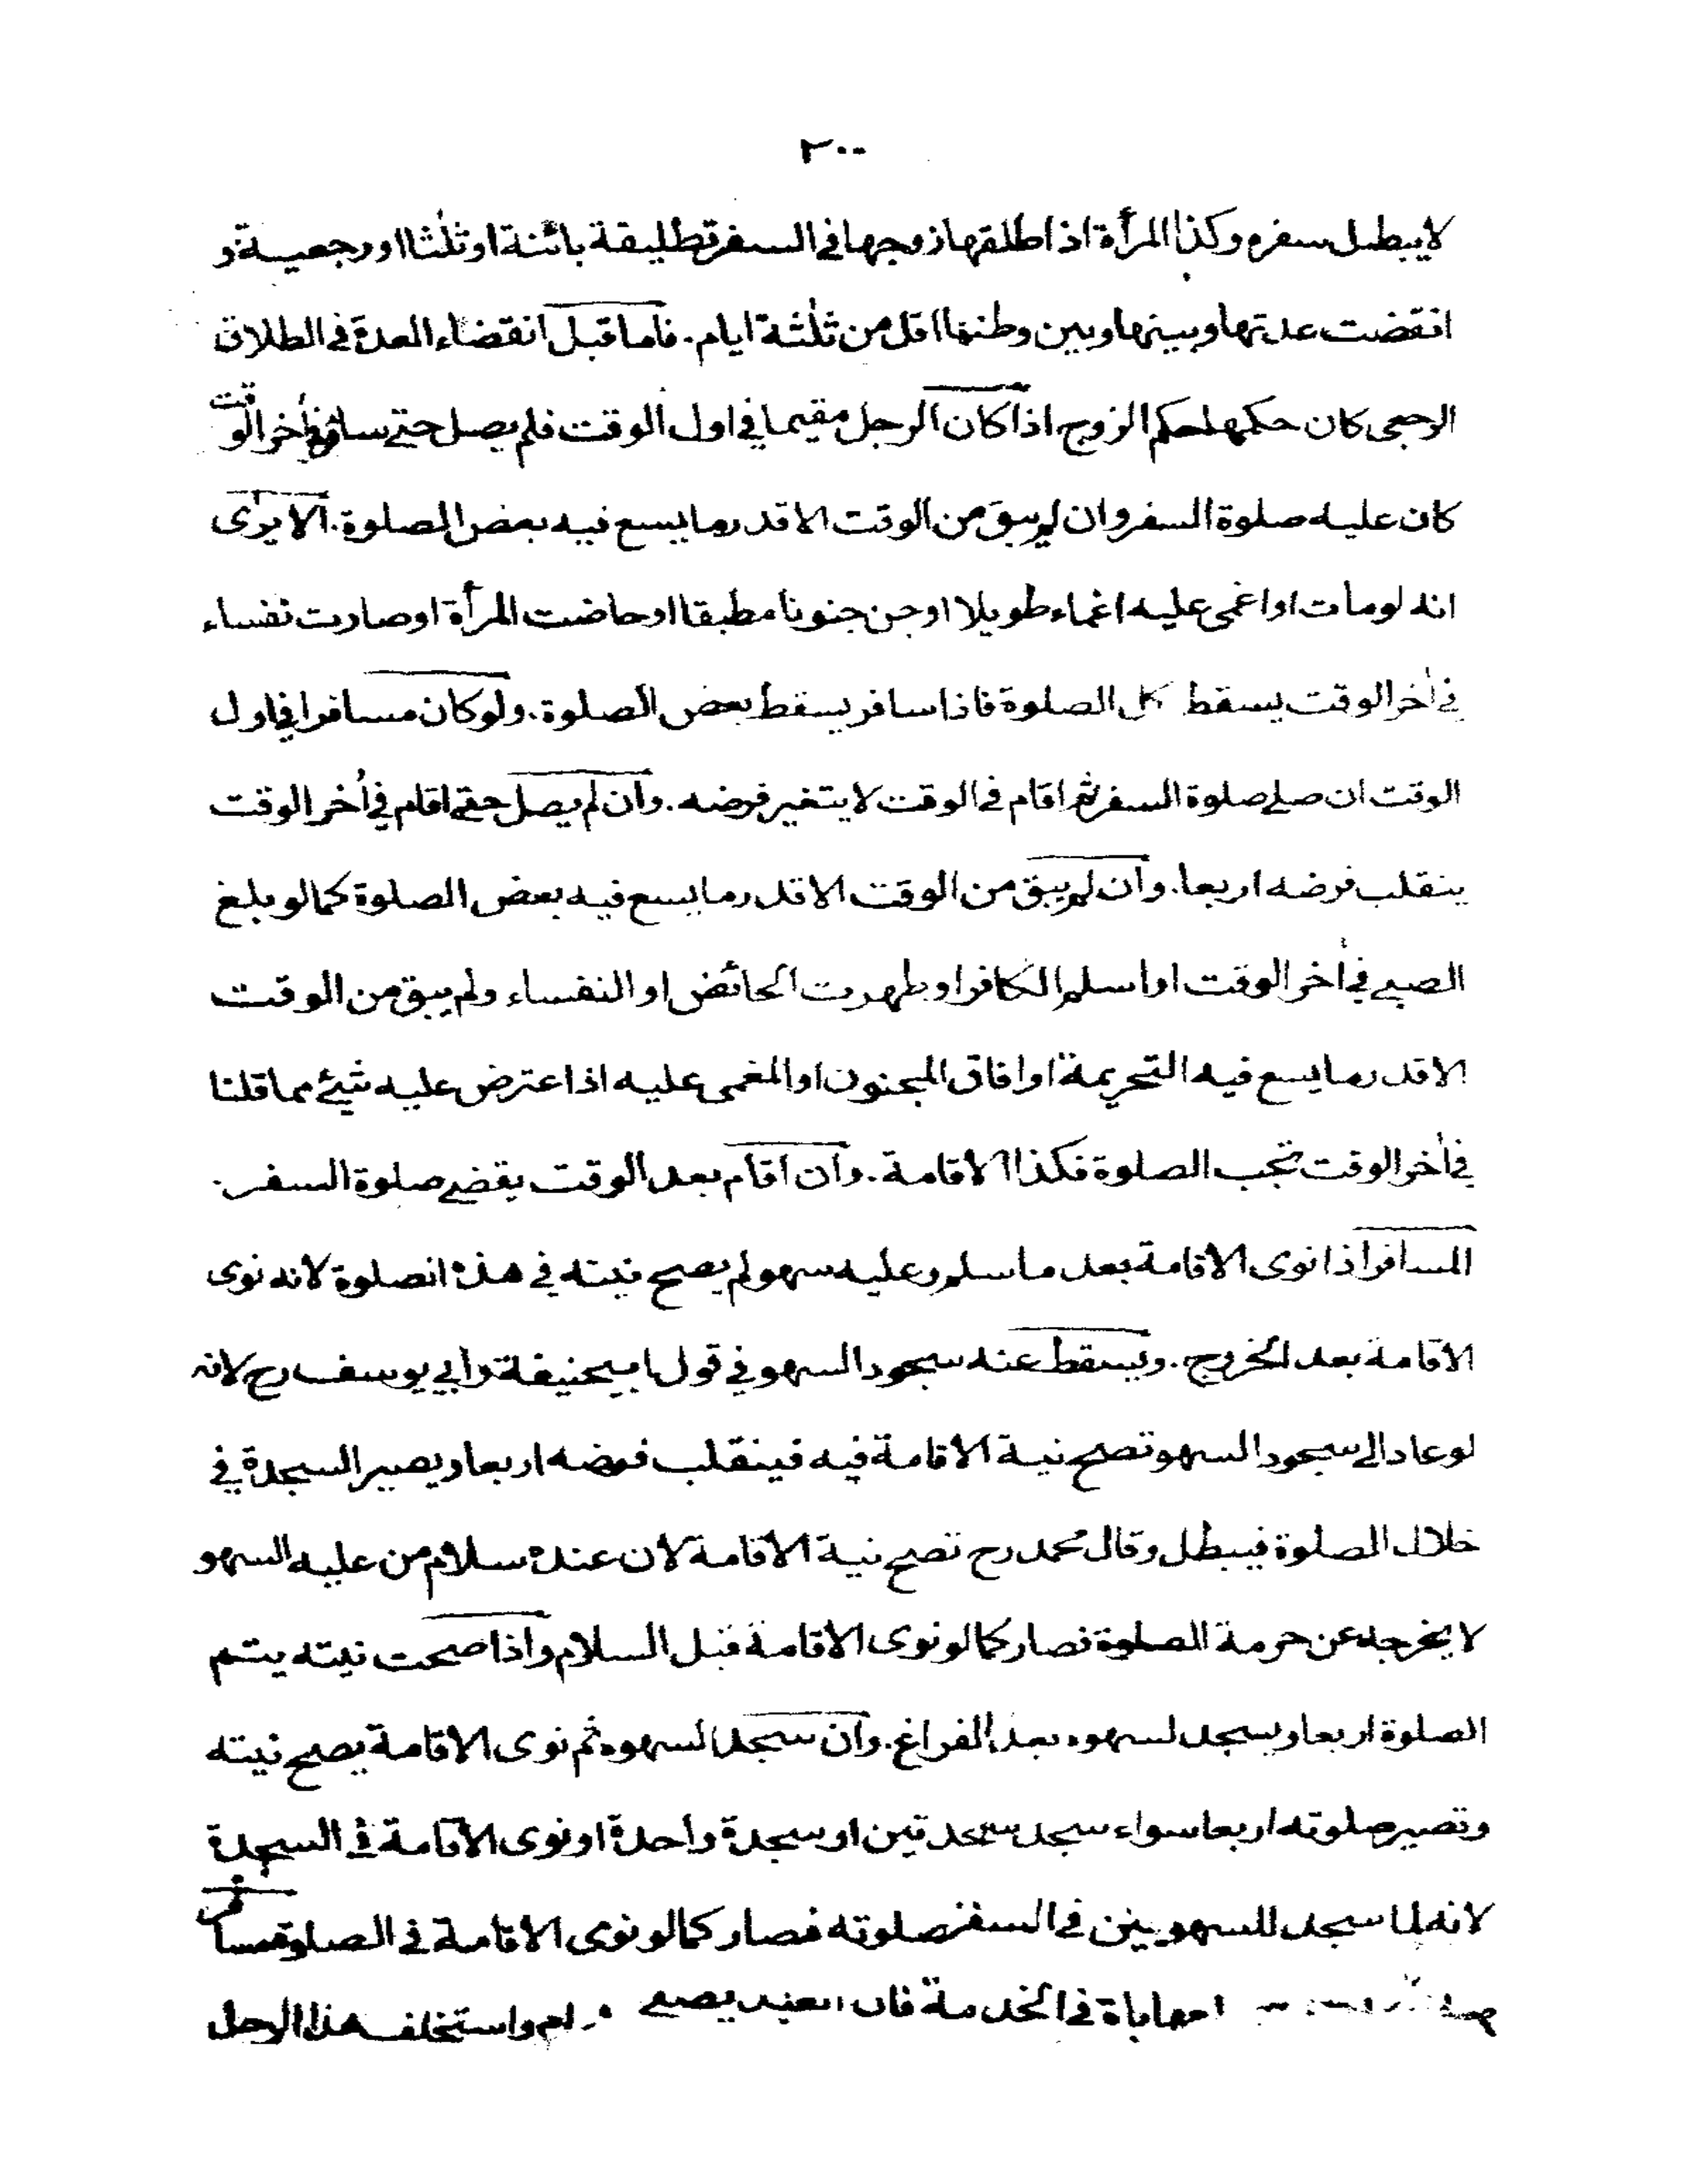 ٢٠٠
لايبطل سفره وكذا المرأة اذا طلقها زوجها فى السفر تطليقة بائنة او ثلٰثا او رجعية و
انقضت عدتها وبينها وبين وطنها اقل من ثلٰثة ايام. فاما قبل انقضاء العدة فى الطلاق
الرجعى كان حكمها حكم الزوج اذا كان الرجل مقيما فى اول الوقت فلم يصل حتى سافر فى اٰخر الوقت
كان عليه صلوة السفر وان لم يبق من الوقت الا قدر ما يسع فيه بعض الصلوة. الا يرى
انه لو مات او اغمى عليه اغماء طويلا او جن جنونا مطبقا او حاضت المرأة او صارت نفساء
فى اٰخر الوقت يسقط كل الصلوة فاذا سافر يسقط بعض الصلوة. ولو كان مسافرا فى اول
الوقت ان صلى صلوة السفر ثم اقام فى الوقت لا يتغير فرضه. وان لم يصل حتى اقام فى اٰخر الوقت
ينقلب فرضه اربعا. وان لم يبق من الوقت الا قدر ما يسع فيه بعض الصلوة كما لو بلغ
الصبى فى اٰخر الوقت او اسلم الكافر او طهرت الحائض او النفساء ولم يبق من الوقت
الا قدر ما يسع فيه التحريمة او افاق المجنون او المغمى عليه اذا عترض عليه شيئ مما قلنا
فى اٰخر الوقت تجب الصلوة فكذا الاقامة. وان اقام بعد الوقت يقضى صلوة السفر.
المسافر اذا نوى الاقامة بعد ما سلم وعليه سهو لم يصح نيته فى هذه الصلوة لانه نوى
الاقامة بعد الخروج. ويسقط عنه سجود السهو فى قول ابيحنيفة وابي يوسف رح لانه
لو عاد الى سجود السهو تصح نية الاقامة فيه فينقلب فرضه اربعا ويصير السجدة فى
خلال الصلوة فيبطل وقال محمد رح تصح نية الاقامة لان عنده سلام من عليه السهو
لا يخرجه عن حرمة الصلوة فصار كما لو نوى الاقامة قبل السلام واذا صحت نيته يتم
الصلوة اربعا ويسجد لسهوه بعد الفراغ. وان سجد لسهوه ثم نوى الاقامة يصح نيته
وتصير صلوته اربعا سواء سجد سجدتين او سجدة واحدة او نوى الاقامة فى السجدة
لانه لما سجد للسهو صلوته فصار كما لو نوى الاقامة فى الصلوة مسافر
فى الخدمة فان العبد يصلى واستخلف هذا الرجل